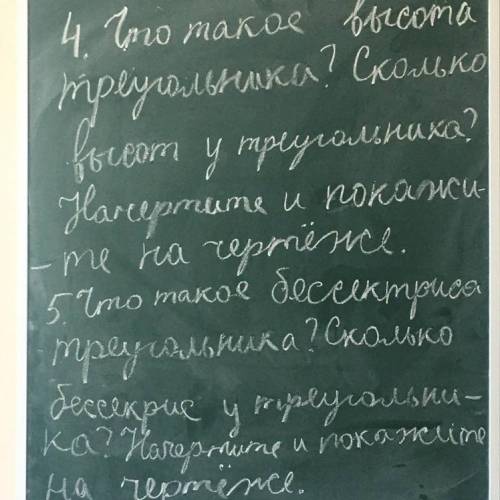 4. Что такое высота
треугольника? Сколько
высот у треугольника?
Начертите и покажи-
- те на чертёже.
5. Что такое бессектриса
треугольника? Сколько
бессекрис у треугольни-
ка? Начертите и покажите
на чертёже.